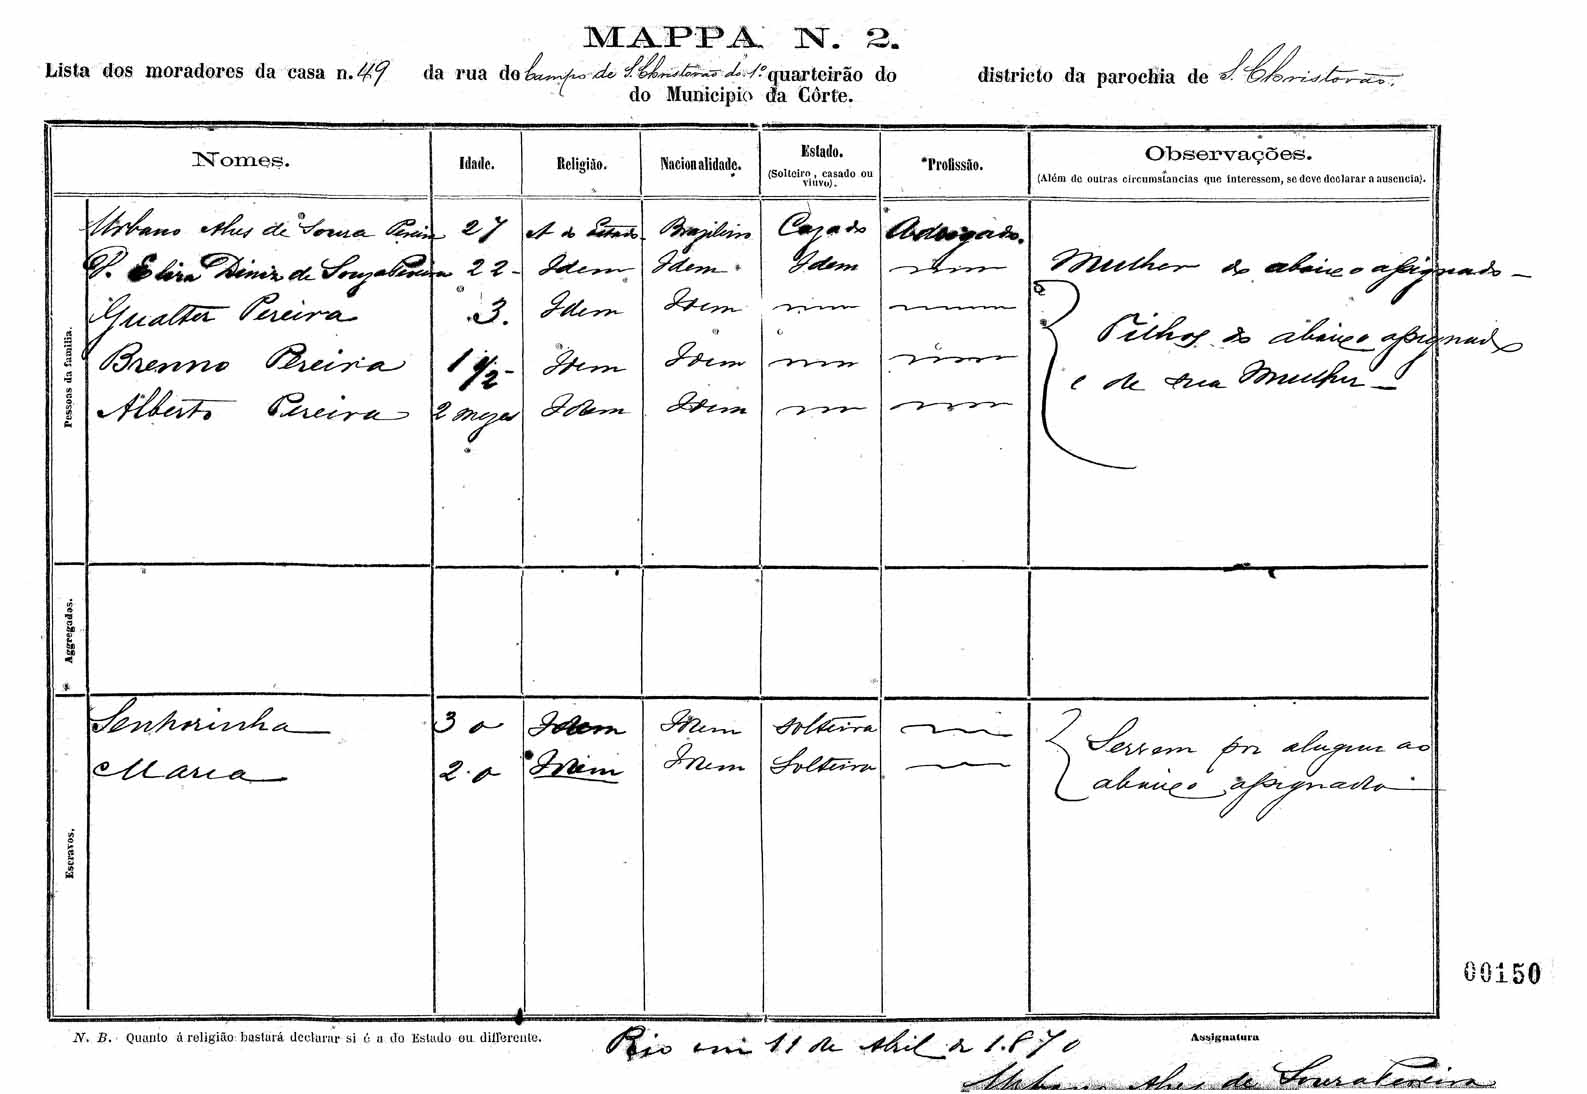 MAPPA N. 2.
Lista dos moradores da casa n. 49 da rua do Campo de S. Christovão do 1.º quarteirão do districto da parochia de S. Christovão.
do Municipio da Côrte.
Nomes. Idade. Religião. Nacionalidade. Estado. (Solteiro, casado ou viuvo). Profissão. Observações. (Além de outras circumstancias que interessem, se deve declarar a ausencia).
Pessoas da familia.
Urbano Alves de Souza Pereira 27 A do Estado Brazileiro Cazado Advogado.
D. Eliza Diniz de Souza Pereira 22 - Idem Idem Idem Mulher do abaixo assignado -
Gualter Pereira 3. Idem Idem
Filhos do abaixo assignado
Brenno Pereira 1 1/2 - Idem Idem
e de sua Mulher -
Alberto Pereira 2 mezes Idem Idem
Aggregados.
Escravos.
Senhorinha 30 Idem Idem solteira
Servem por aluguel ao
Maria 20 Idem Idem Solteira
abaixo assignado
00150
N. B. Quanto á religião bastará declarar si é a do Estado ou differente.
Rio em 11 de Abril de 1.870
Assignatura
Urbano Alves de Souza Pereira